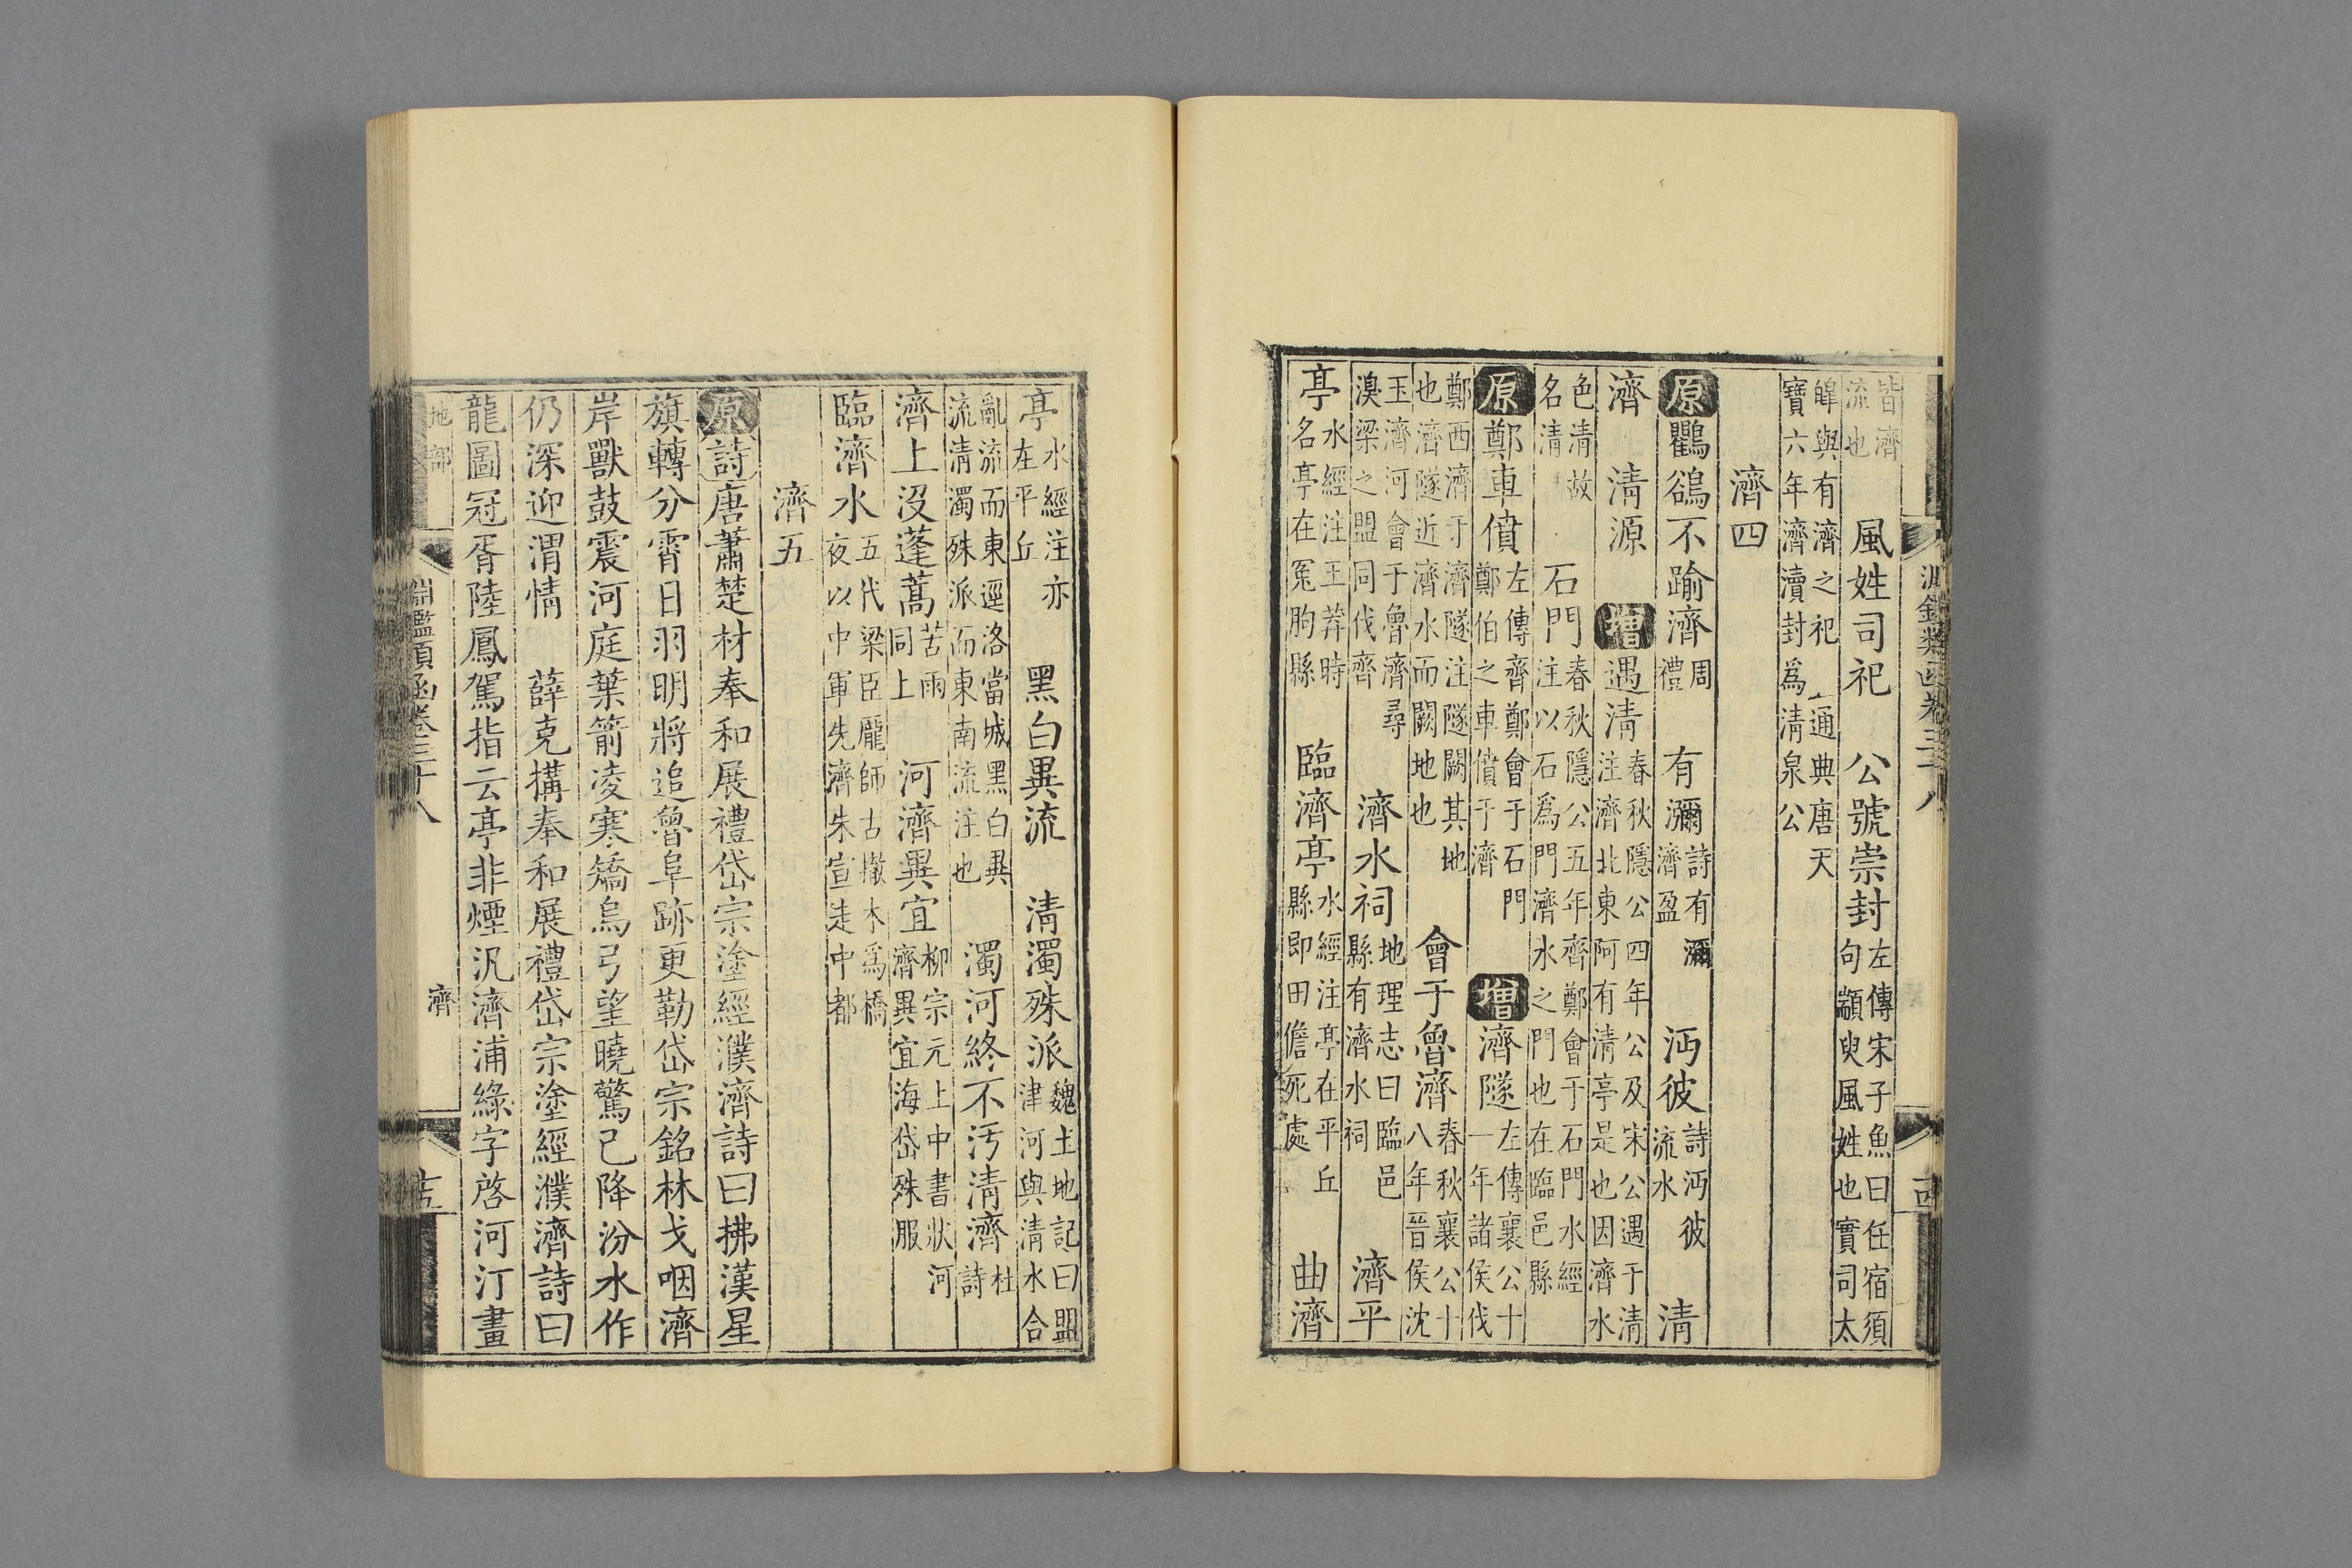 皆濟流也　風姓司祀　公號崇封左傳宋子魚曰任宿須句顓臾風姓也實司太
皡與有濟之祀　通典唐天寶六年濟瀆封爲淸泉公
濟四
原鸜鵒不踰濟周禮　有瀰詩有瀰濟盈　沔彼詩沔彼流水　淸
濟　淸源　增遇淸春秋隱公四年公及宋公遇于淸注濟北東阿有淸亭是也因濟水
色淸故名淸　石門春秋隱公五年齊鄭會于石門水經注以石爲門濟水之門也在臨邑縣
原鄭車僨左傳齊鄭會于石門鄭伯之車僨于濟　增濟隧左傳襄公十一年諸侯伐
鄭西濟于濟隧注隧闕其地也濟隧近濟水而闕地也　會于魯濟春秋襄公十八年晉侯沈
玉濟河會于魯濟尋溴梁之盟同伐齊　濟水祠地理志曰臨邑縣有濟水祠　濟平
亭水經注王莽時名亭在寃朐縣　臨濟亭水經注亭在平丘縣卽田儋死處　曲濟
亭水經注亦在平丘　黑白異流　淸濁殊派魏土地記曰盟津河與淸水合
亂流而東逕洛當城黑白異流淸濁殊派而東南流注也　濁河終不汚淸濟杜詩
濟上沒蓬蒿苦雨同上　河濟異宜柳宗元上中書狀河濟異宜海岱殊服
臨濟水五代梁臣龎師古撤木爲橋夜以中軍先濟朱宣走中都
濟五
原詩唐蕭楚材奉和展禮岱宗塗經濮濟詩曰拂漢星
旗轉分霄日羽明將追魯阜跡更勒岱宗銘林戈咽濟
岸獸鼓震河庭葉箭凌寒矯烏弓望曉驚已降汾水作
仍深迎渭情　薛克搆奉和展禮岱宗塗經濮濟詩曰
龍圖冠胥陸鳳駕指云亭非煙汎濟浦綠字啓河汀畫
地部　淵鑑類函卷三十八　濟